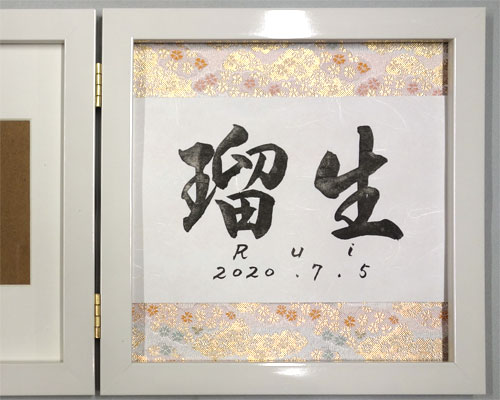 瑠生
Rui
2020.7.5